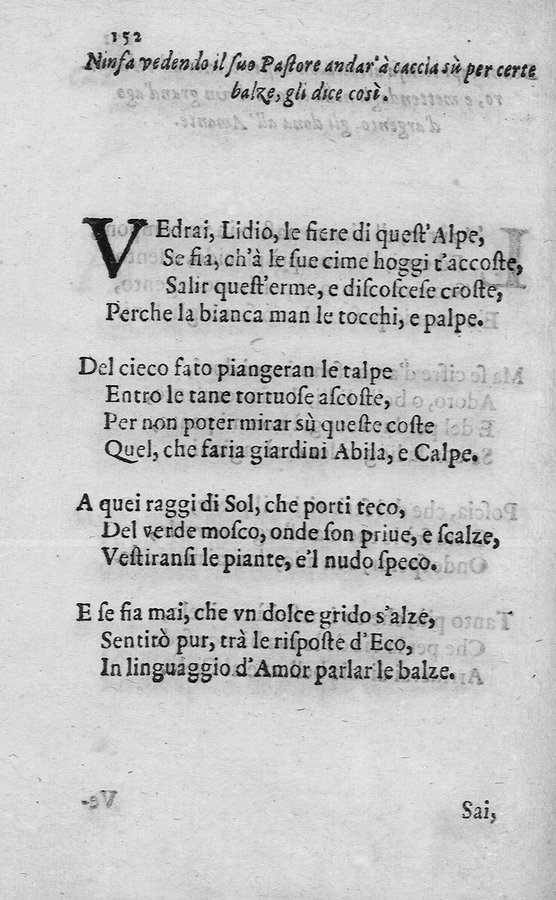 152
Ninfa vedendo il ſuo Paſtore andar'à caccia sù per certe
balze, gli dice così.
VEdrai, Lidio, le fiere di queſt'Alpe,
Se fia, ch'à le ſue cime hoggi t'accoſte,
Salir queſt'erme, e diſcoſceſe croſte,
Perche la bianca man le tocchi, e palpe.
Del cieco fato piangeran le talpe
Entro le tane tortuoſe aſcoſte,
Per non poter mirar sù queſte coſte
Quel, che faria giardini Abila, e Calpe.
A quei raggi di Sol, che porti teco,
Del verde moſco, onde ſon priue, e ſcalze,
Veſtiranſi le piante, e'l nudo ſpeco.
E ſe fia mai, che vn dolce grido s'alze,
Sentirò pur, trà le riſpoſte d'Eco,
In linguaggio d'Amor parlar le balze.
Sai,